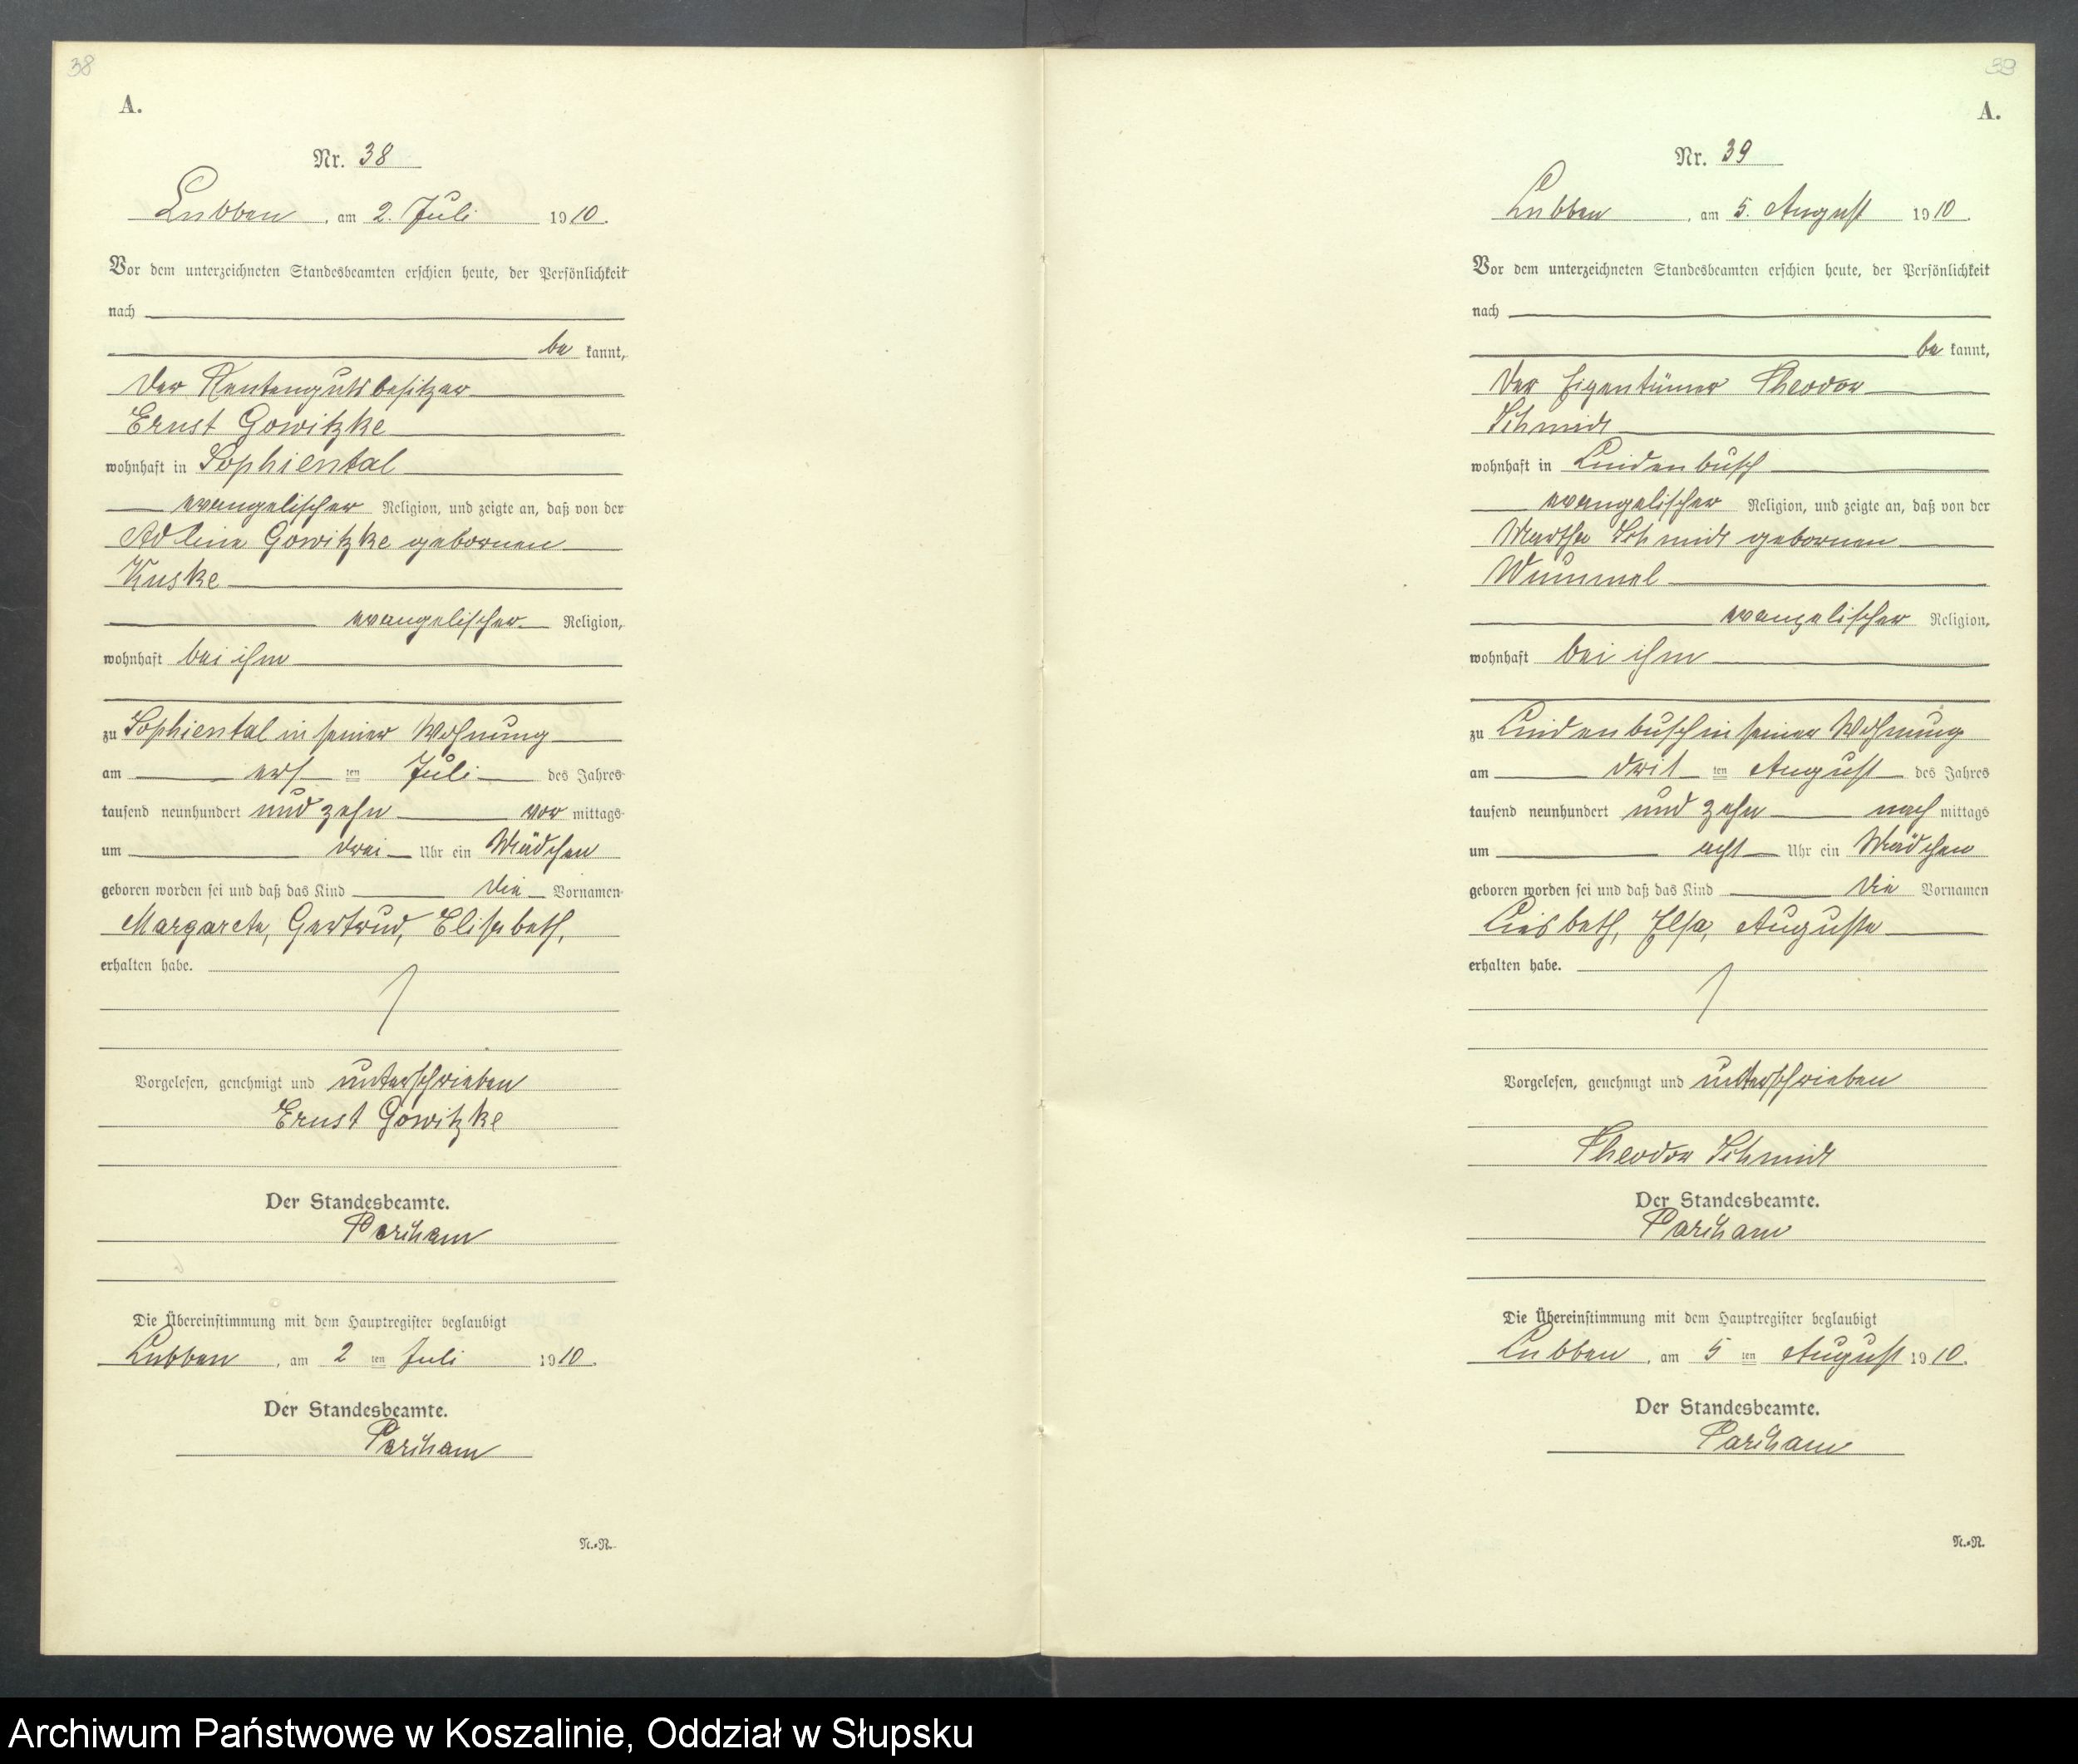 38
A.
Nr. 38
Lubben, am 2. Juli 1910.
Vor dem unterzeichneten Standesbeamten erschien heute, der Persönlichkeit
nach
be kannt,
der Rentengutsbesitzer
Ernst Gowitzke
wohnhaft in Sophiental
evangelischer Religion, und zeigte an, daß von der
Adline Gowitzke gebornen
Kuske
evangelischer Religion,
wohnhaft bei ihm
zu Sophiental in seiner Wohnung
am erst ten Juli des Jahres
tausend neunhundert und zehn vor mittags
um drei Uhr ein Mädchen
geboren worden sei und daß das Kind die Vornamen
Margarete, Gertrud, Elisabeth,
erhalten habe.
Vorgelesen, genehmigt und unterschrieben
Ernst Gowitzke
Der Standesbeamte.
Die Übereinstimmung mit dem Hauptregister beglaubigt
Lubben, am 2 ten Juli 1910.
Der Standesbeamte.
N.-R.
39
A.
Nr. 39
Lubben, am 5. August 1910.
Vor dem unterzeichneten Standesbeamten erschien heute, der Persönlichkeit
nach
be kannt,
der Eigentümer Theodor
Schmidt
wohnhaft in Lindenbusch
evangelischer Religion, und zeigte an, daß von der
Martha Schmidt gebornen
Wummel
evangelischer Religion,
wohnhaft bei ihm
zu Lindenbusch in seiner Wohnung
am drit ten August des Jahres
tausend neunhundert und zehn nach mittags
um acht Uhr ein Mädchen
geboren worden sei und daß das Kind die Vornamen
Liesbeth, Ilse, Auguste
erhalten habe.
Vorgelesen, genehmigt und unterschrieben
Theodor Schmidt
Der Standesbeamte.
Die Übereinstimmung mit dem Hauptregister beglaubigt
Lubben, am 5 ten August 1910.
Der Standesbeamte.
N.-R.
Archiwum Państwowe w Koszalinie, Oddział w Słupsku